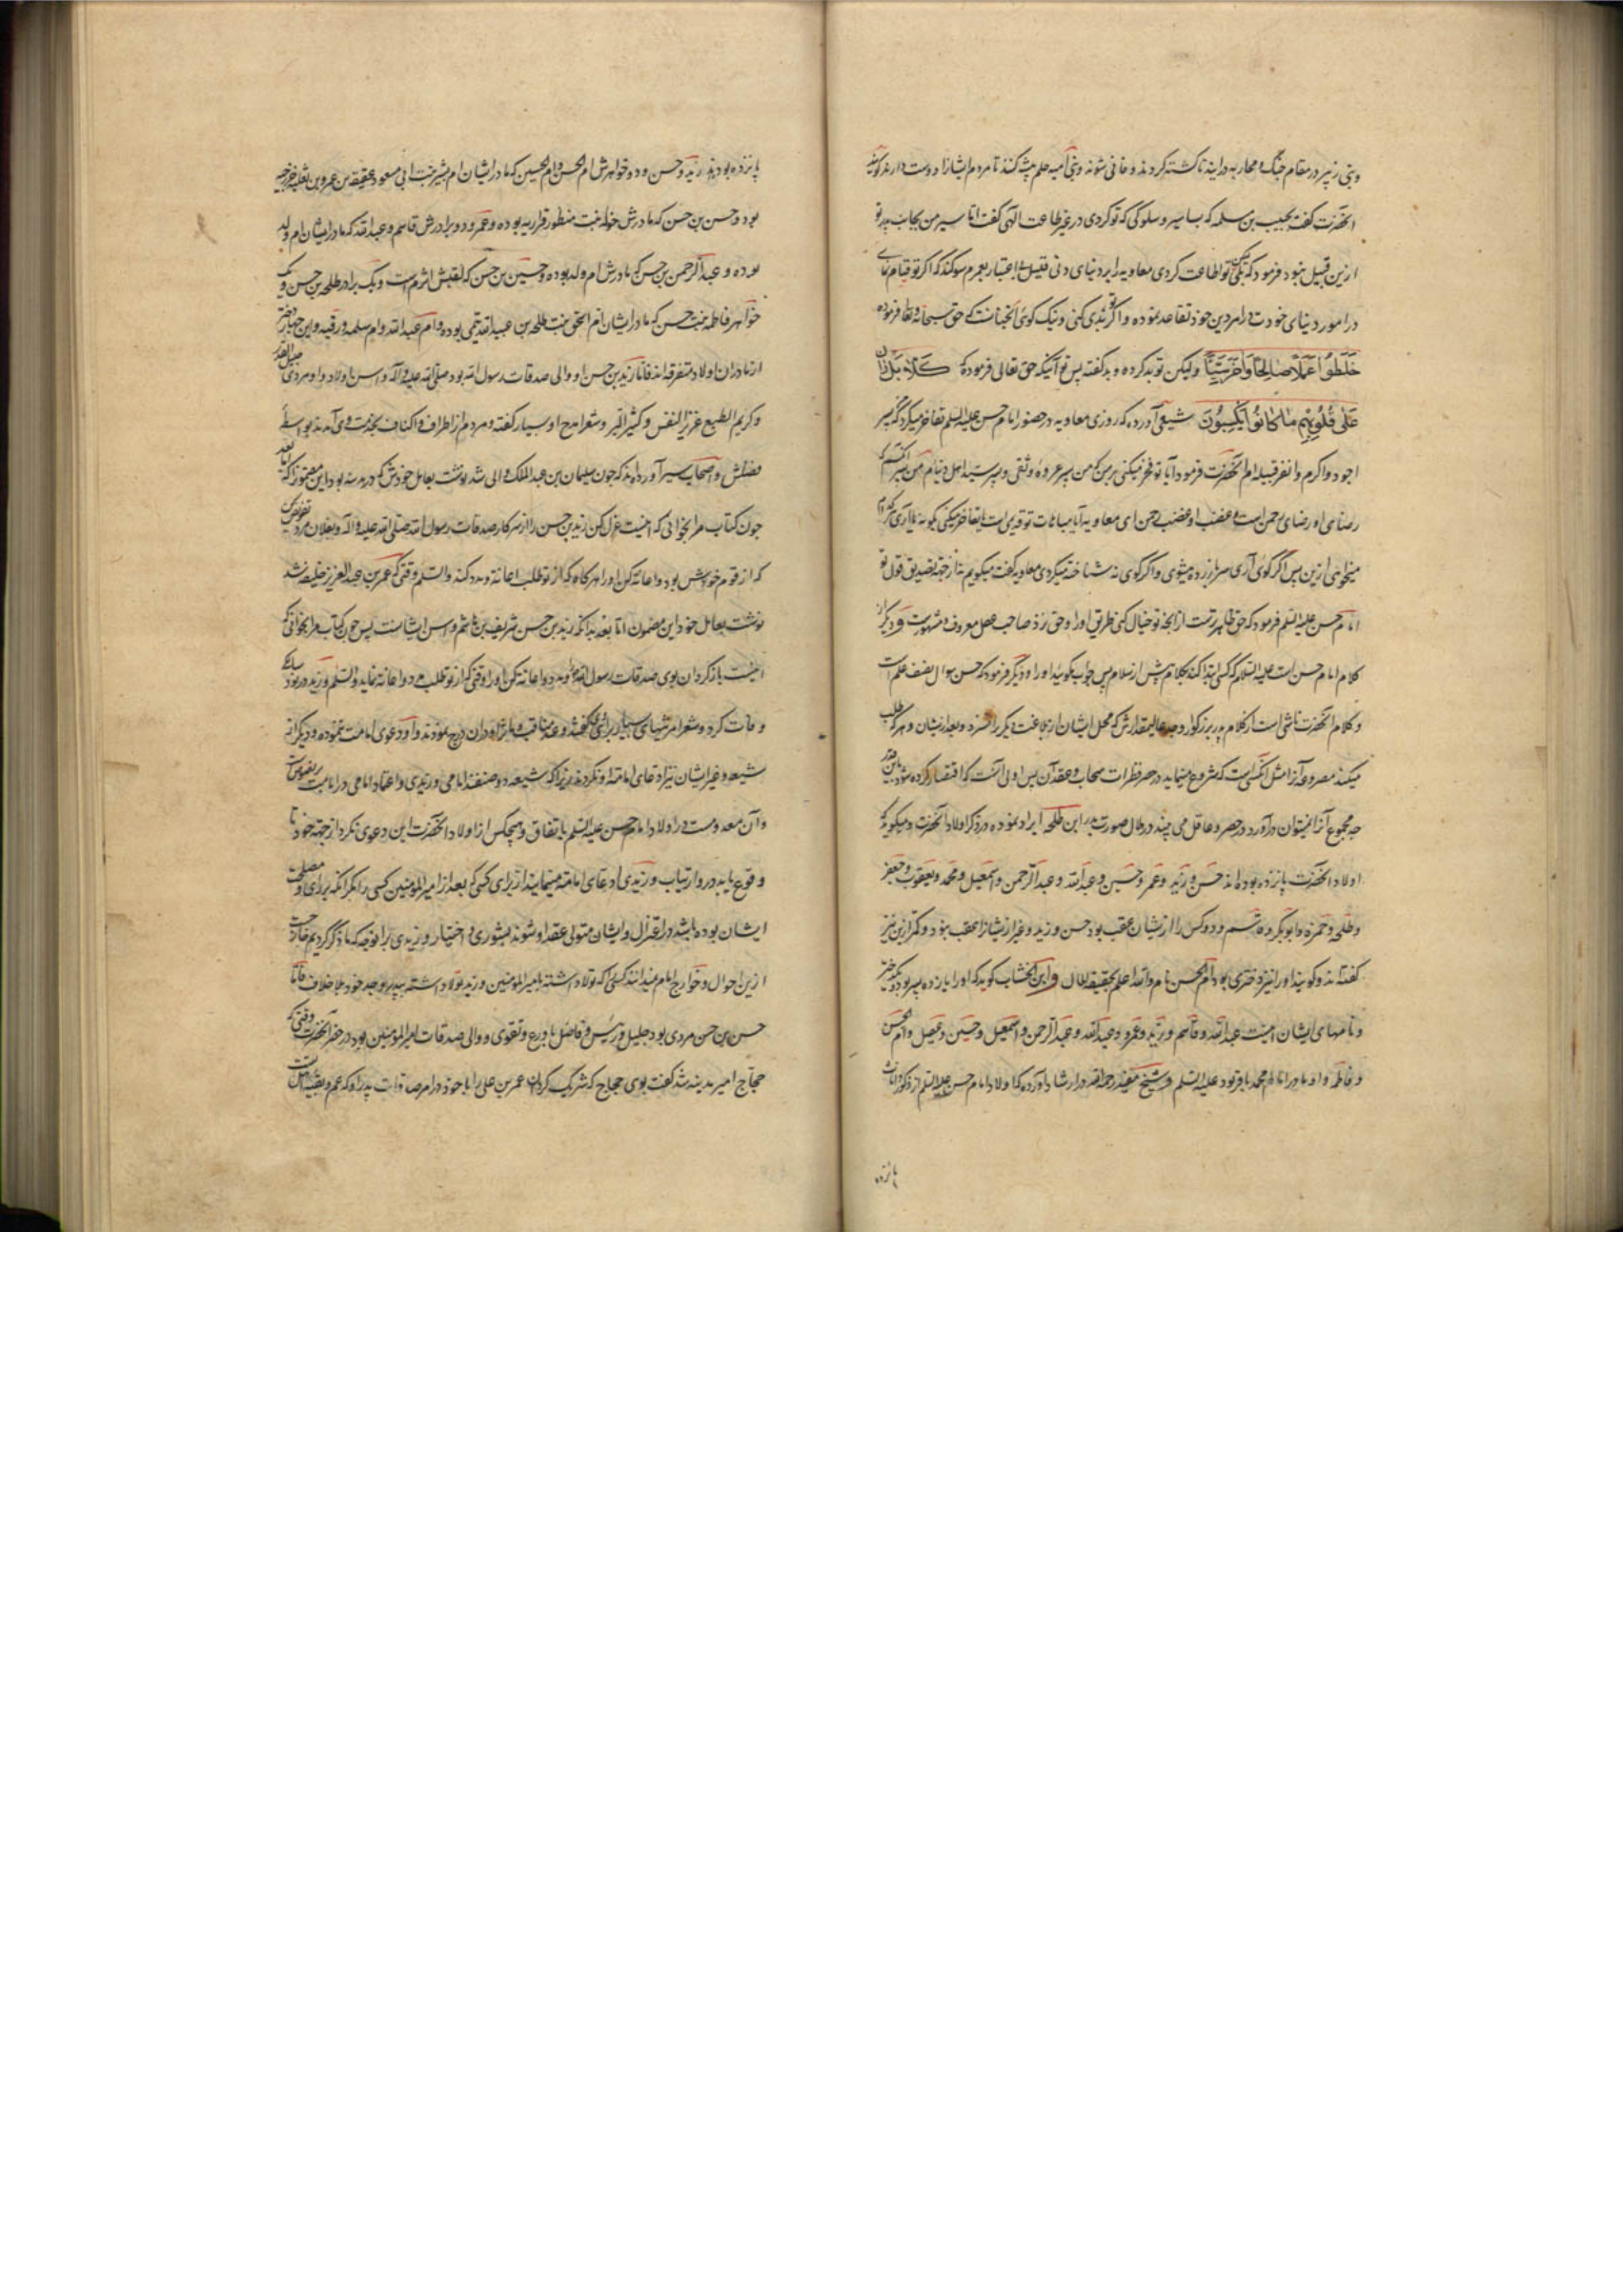 وبنی زبیر در مقام جنگ و محاربه درایند تا کشته کردند و فانی شوند وبنی امیه حلم پیشه کنند تا مردم ایشانرا دوست دارند
انحضرت گفت بحبیب بن مسلمه که بسا سیر و سلوکی که تو کردی در غیر طاعت الهی گفت اما سیر من بجانب پدر تو
ازین قبیل نبود فرمود که بلی تو اطاعت کردی معاویه را بر دنیای دنی قلیل بعمرم سوگند که اگر تو قیام نمای
در امور دنیای خودت در امر دین خود تقاعد نموده و اگر تو بدی کنی و نیک گوی انچنانست که حق سبحانه و تعالی فرموده
خَلَطُوا عَمَلًا صَالِحًا وَآخَرَ سَيِّئًا ولیکن تو بد کرده و بد گفته پس تو آنیکه حق تعالی فرموده كَلَّا بَلْ رَانَ
عَلَى قُلُوبِهِمْ مَا كَانُوا يَكْسِبُونَ شعبی آورده که روزی معاویه در حضور امام حسن علیه السلم تفاخر میکرد که پسر
اجود و اکرم وانحضرت فرمود آیا تو فخر میکنی بر من که من پسر عروه وثقی و پسر سید اهل دنیاام من پسر انکسم که
رضای او رضای رحمن است و غضب او غضب رحمن ای معاویه آیا مباهات تو قدیم است یا تفاخر میکنی بگو نه یا آری
میخواهی ازین پس اگر گوی آری سر باز زده میشوی و اگر گوی نه شناخته میگردی معاویه گفت میگویم نه از جهة تصدیق قول تو
امام حسن علیه السلم فرمود که حق ظاهرست از آنچه تو خیال کنی طریق او را و حق نزد صاحب عقل معروف و مشهورست و دیگر از
کلام امام حسن است علیه السلام که کسی ابتدا کند بکلام پیش از سلام پس جواب مگویید او را و دیگر فرمود که حسن سوال نصف علم است
وکلام انحضرت ناشی است از کلام پدر بزرگوار وجد عالیمقدارش که محل ایشان از بلاغت و بعد از یشان و هر که طلب
میکند آنرا مثل انکسی است که شروع مینماید در حصر قطرات سحاب و عقد آن پس اولی آنست که اقتصار کرده شود باین قدر
چه مجموع آنرا نمیتوان درآورد در حصر و عاقل می بیند در هلال صورت بدر ابن طلحه ایراد نموده در ذکر اولاد انحضرت و میگوید که
اولاد انحضرت پانزده بوده اند حسن و زید وعمر و حسین و عبدالله و عبدالرحمن و اسمعیل و محمد و یعقوب و جعفر
وطلحه و حمزه و ابوبکر و قاسم و دو کس را از یشان عقب بود حسن و زید و غیر از یشانرا عقب نبود و کمتر ازین نیز
گفته اند و گویند او را نیز دختری بود ام الحسن نام والله اعلم بحقیقة الحال و ابن الخشاب گوید که او را یازده پسر بود و یک دختر
و نامهای ایشان اینست عبدالله و قاسم و زید و عمرو و عبدالله و عبدالرحمن و اسمعیل و حسین و عقیل و ام الحسن
و فاطمه و او مادر امام محمد باقر بود علیه السلم و شیخ مفید رحمه الله در ارشاد آورده که اولاد امام حسن علیه السلم از ذکور و اناث
پانزده
پانزده بودند زید وحسن و دو خواهرش ام الحسن و ام الحسین که مادر ایشان ام بشیر بنت ابی مسعود عقبة بن عمرو بن ثعلبه خزرجیه
بود وحسن بن حسن که مادرش خوله بنت منظور فزاریه بوده وعمرو و دو برادرش قاسم و عبدالله که مادر ایشان ام ولد
بوده و عبدالرحمن بن حسن که مادرش ام ولد بوده و حسین بن حسن که لقبش اثرم است و یک برادر طلحه بن حسن و یک
خواهر فاطمه بنت حسن که مادر ایشان ام اسحق بنت طلحه بن عبیدالله تیمی بوده و ام عبدالله و ام سلمه و رقیه و این چهار دختر
از مادران اولاد متفرقه اند فاما زید بن حسن او والی صدقات رسول الله بود صلی الله علیه و آله واسن اولاد و او مردی جلیل القدر
وکریم الطبع عزیز النفس و کثیر البر و شعرا مدح او بسیار گفته و مردم از اطراف و اکناف بخدمت وی آمدند بواسطه
فضلش واصحاب سیر آورده اند که چون سلیمان بن عبدالملک والی شد نوشت بعامل خودش که در مدینه بود این مضمون که اما بعد
چون کتاب مرا بخوانی که اینست عزل کن زید بن حسن را از سر کار صدقات رسول الله صلی الله علیه و اله و بفلان مرد تفویض کن
که از قوم خویش بود و اعانه کن او را هر گاه که از تو طلب اعانة و مدد کند والسلم و وقتی که عمر بن عبدالعزیز خلیفه شد
نوشت بعامل خود این مضمون اما بعد بدانکه زید بن حسن شریف بن هاشم و اسن ایشانست پس چون کتاب مرا بخوانی که
اینست بازگردان بوی صدقات رسول الله و مدد و اعانه کن او را وقتی که از تو طلب مدد و اعانه نماید والسلم و زید در نود سالگی
وفات کرده و شعرا مرثیهای بسیار برای وی گفتند و عد مناقب و مآثر او در ان درج نمودند و او دعوی امامت ننموده و دیگرانه
شیعه و غیر ایشان نیز ادعای امامة او نکردند زیرا که شیعه دو صنفند امامی و زیدی و اعتماد امامی در امامت بر نصوص است
و آن معدومست در اولاد امام حسن علیه السلم باتفاق و هیچکس از اولاد انحضرت این دعوی نکرد از جهة خود تا
وقوع یابد درو ارتیاب و زیدی ادعای امامة مینمایند از برای کسی که بعد از امیر المومنین کسی را مگر انکه برای و مصلحت
ایشان بوده باشد در اعتزال و ایشان متولی عقد او شوند بشوری و اختیار و زیدی را نوجه که ما ذکر کردیم خارجست
ازین احوال و خوارج امام نمیدانند کسی را که تولاد اشته بامیر المومنین و زید تولا داشته بپدر وجد خود بلا خلاف فاما
حسن بن حسن مردی بود جلیل و رئیس و فاضل با ورع و تقوی و والی صدقات امیر المومنین بود در عصر انحضرت وقتی که
حجاج امیر مدینه شد گفت بوی حجاج که شریک گردان عمر بن علی را با خود در امر صدقات پدر او که عم و بقیه اهل تست